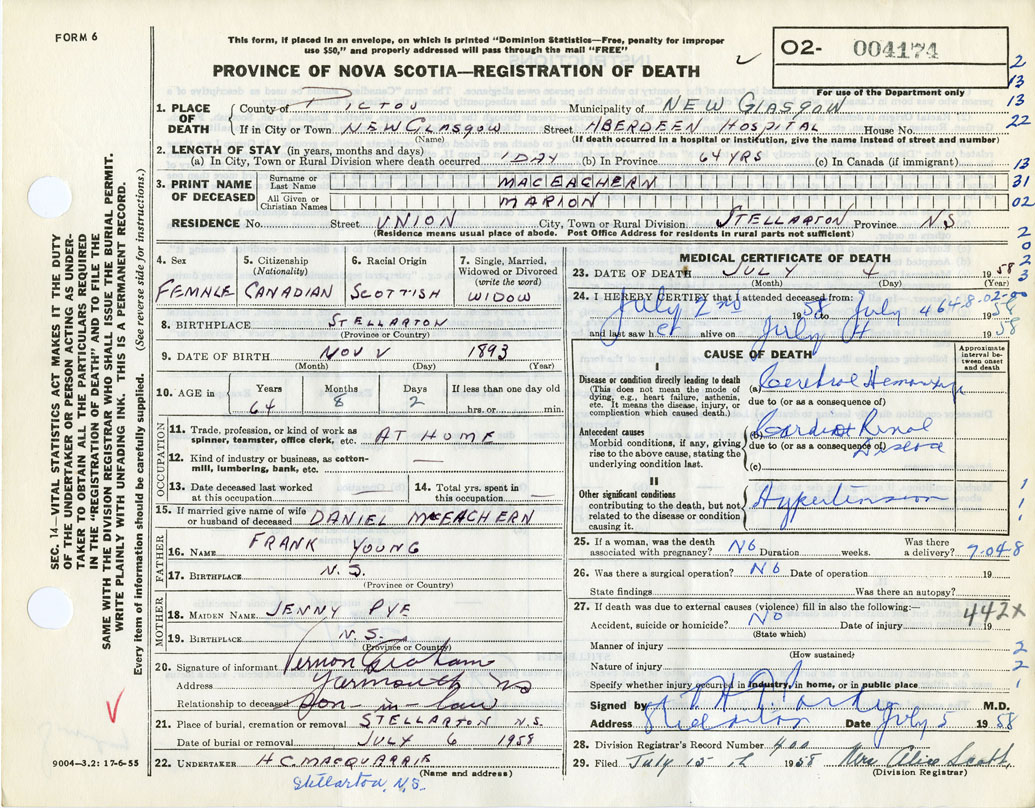 FORM 6
This form, if placed in an envelope, on which is printed "Dominion Statistics—Free, penalty for improper
use $50," and properly addressed will pass through the mail "FREE"
PROVINCE OF NOVA SCOTIA—REGISTRATION OF DEATH
02- 004174
For use of the Department only
1. PLACE OF DEATH
County of PICTOU Municipality of NEW GLASGOW
If in City or Town NEW GLASGOW Street ABERDEEN HOSPITAL House No.
(Name) (If death occurred in a hospital or institution, give the name instead of street and number)
2. LENGTH OF STAY (in years, months and days)
(a) In City, Town or Rural Division where death occurred 1 DAY (b) In Province 64 YRS (c) In Canada (if immigrant)
3. PRINT NAME OF DECEASED
Surname or Last Name MACEACHERN
All Given or Christian Names MARION
RESIDENCE No. Street UNION City, Town or Rural Division STELLARTON Province NS
(Residence means usual place of abode. Post Office Address for residents in rural parts not sufficient)
2
13
13
22
13
31
02
2
0
2
3
SEC. 14—VITAL STATISTICS ACT MAKES IT THE DUTY
OF THE UNDERTAKER OR PERSON ACTING AS UNDER-
TAKER TO OBTAIN ALL THE PARTICULARS REQUIRED
IN THE "REGISTRATION OF DEATH" AND TO FILE THE
SAME WITH THE DIVISION REGISTRAR WHO SHALL ISSUE THE BURIAL PERMIT.
WRITE PLAINLY WITH UNFADING INK. THIS IS A PERMANENT RECORD.
Every item of information should be carefully supplied. (See reverse side for instructions.)
4. Sex
FEMALE
5. Citizenship
(Nationality)
CANADIAN
6. Racial Origin
SCOTTISH
7. Single, Married,
Widowed or Divorced
(write the word)
WIDOW
8. BIRTHPLACE STELLARTON
(Province or Country)
9. DATE OF BIRTH NOV V 1893
(Month) (Day) (Year)
10. AGE in
Years 64
Months 8
Days 2
If less than one day old
hrs. or min.
OCCUPATION
11. Trade, profession, or kind of work as
spinner, teamster, office clerk, etc. AT HOME
12. Kind of industry or business, as cotton-
mill, lumbering, bank, etc. —
13. Date deceased last worked
at this occupation —
14. Total yrs. spent in
this occupation —
15. If married give name of wife
or husband of deceased DANIEL MACEACHERN
FATHER
16. NAME FRANK YOUNG
17. BIRTHPLACE N.S.
(Province or Country)
MOTHER
18. MAIDEN NAME JENNY PYE
19. BIRTHPLACE N.S.
(Province or Country)
20. Signature of informant Vernon Graham
Address Yarmouth NS
Relationship to deceased Son-in-law
21. Place of burial, cremation or removal STELLARTON N.S.
Date of burial or removal JULY 6 1958
22. UNDERTAKER H.C. MACQUARRIE
(Name and address)
Stellarton, N.S.
9004—3.2: 17-6-55
MEDICAL CERTIFICATE OF DEATH
23. DATE OF DEATH JULY 4 1958
(Month) (Day) (Year)
24. I HEREBY CERTIFY that I attended deceased from:
July 2nd 1958 to July 4 1958
468-02-0
and last saw her alive on July 4 1958
CAUSE OF DEATH
Approximate
interval be-
tween onset
and death
I
Disease or condition directly leading to death
(This does not mean the mode of
dying, e.g., heart failure, asthenia,
etc. It means the disease, injury, or
complication which caused death.)
(a) Cerebral Hemorrhage
due to (or as a consequence of)
Antecedent causes
Morbid conditions, if any, giving
rise to the above cause, stating the
underlying condition last.
(b) Cardio Renal
due to (or as a consequence of) Disease
(c)
II
Other significant conditions
contributing to the death, but not
related to the disease or condition
causing it.
Hypertension
1
1
1
25. If a woman, was the death
associated with pregnancy? NO Duration weeks.
Was there
a delivery?
7-04-8
26. Was there a surgical operation? NO Date of operation 19
State findings Was there an autopsy?
27. If death was due to external causes (violence) fill in also the following:—
Accident, suicide or homicide? NO Date of injury 19
(State which)
442X
Manner of injury
(How sustained)
Nature of injury
Specify whether injury occurred in industry, in home, or in public place
2
2
1
Signed by M.D.
Address Stellarton Date July 5 1958
28. Division Registrar's Record Number 400
29. Filed July 15th 1958 Mrs Alice Scott
(Division Registrar)